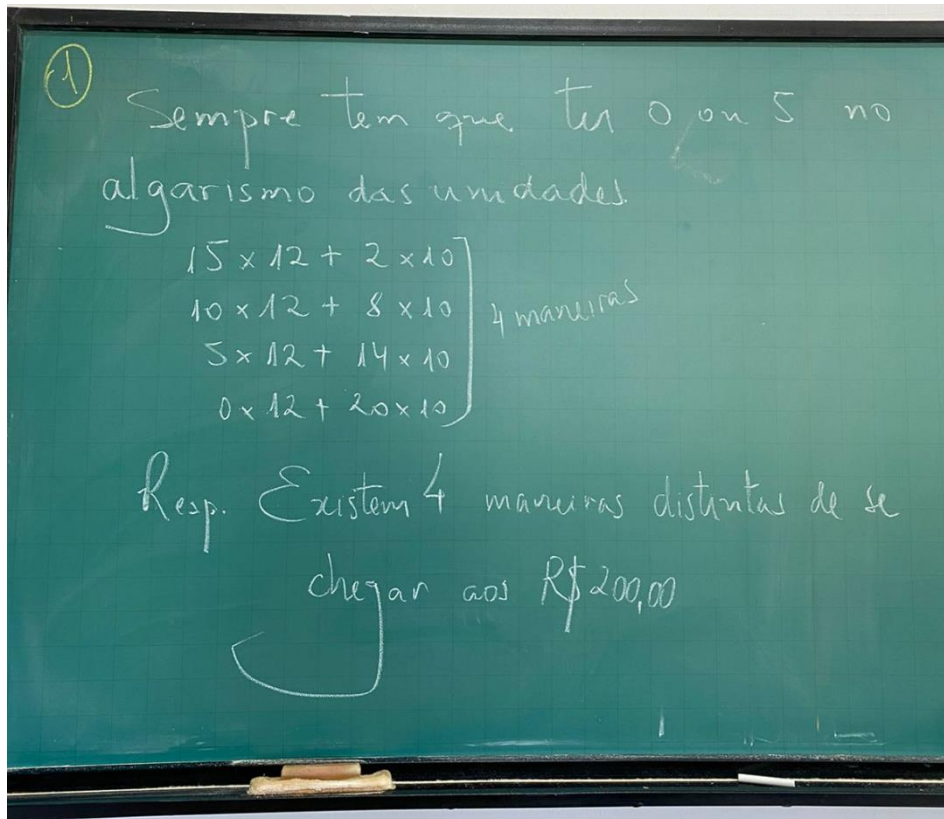 1
Sempre tem que ter 0 ou 5 no
algarismo das unidades.
15 x 12 + 2 x 10
10 x 12 + 8 x 10
4 maneiras
5 x 12 + 14 x 10
0 x 12 + 20 x 10
Resp. Existem 4 maneiras distintas de se
chegar aos R$ 200,00